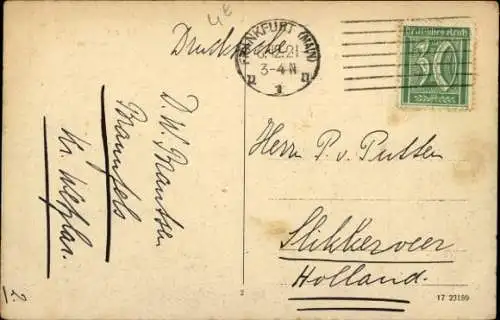 Drucksache
FRANKFURT (MAIN)
6.12.21
3-4 N
1
Deutsches Reich
30
D. W. Brantsen
Braunfels
Kr. Wetzlar.
Herrn P. v. Putten
Slikkerveer
Holland.
2
17 23189